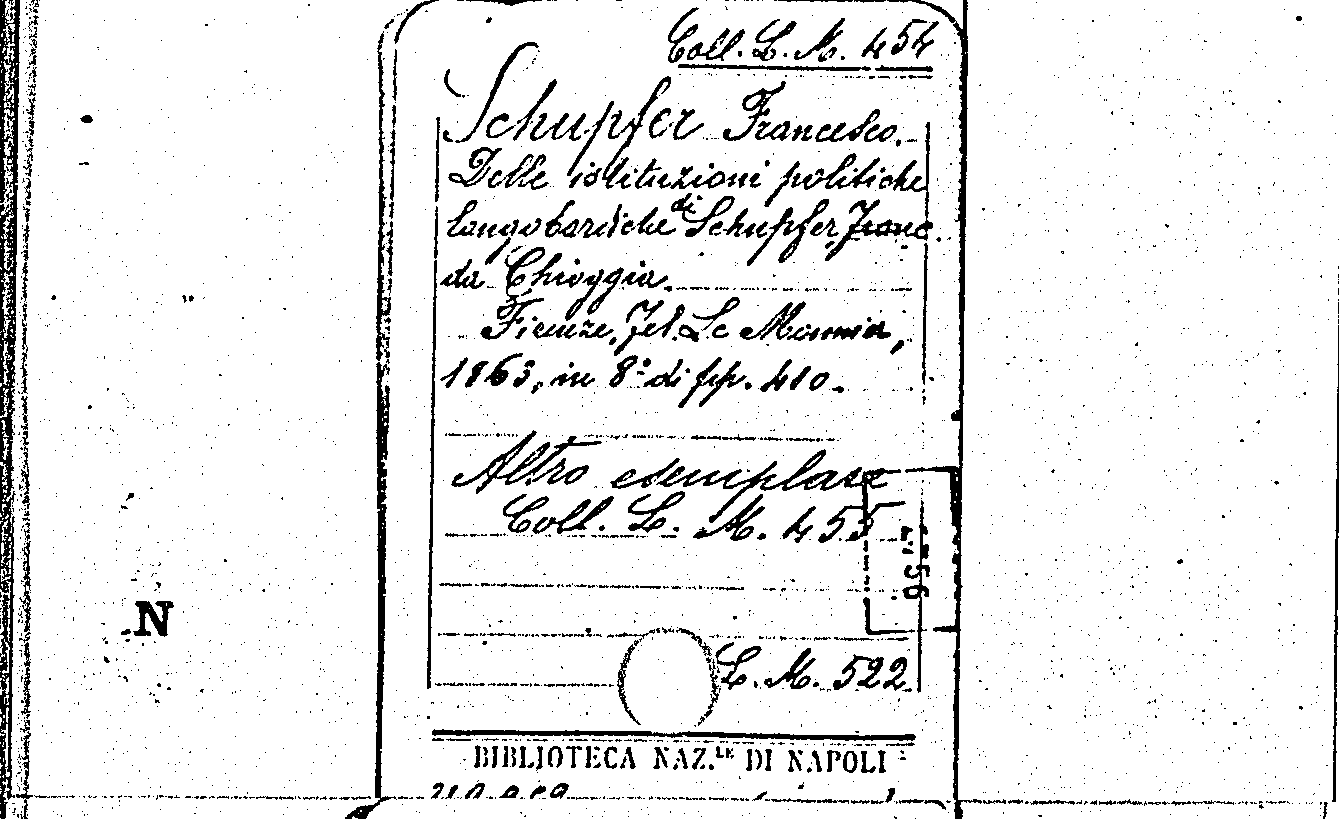 Coll. L. M. 454
Schupfer Francesco.
Delle istituzioni politiche
longobardiche di Schupfer, Franc.
da Chioggia.
Firenze, Fel. Le Monnier,
1863, in 8° di pp. 410.
Altro esemplare
Coll. L. M. 455
56
N
L. M. 522
BIBLIOTECA NAZ.LE DI NAPOLI